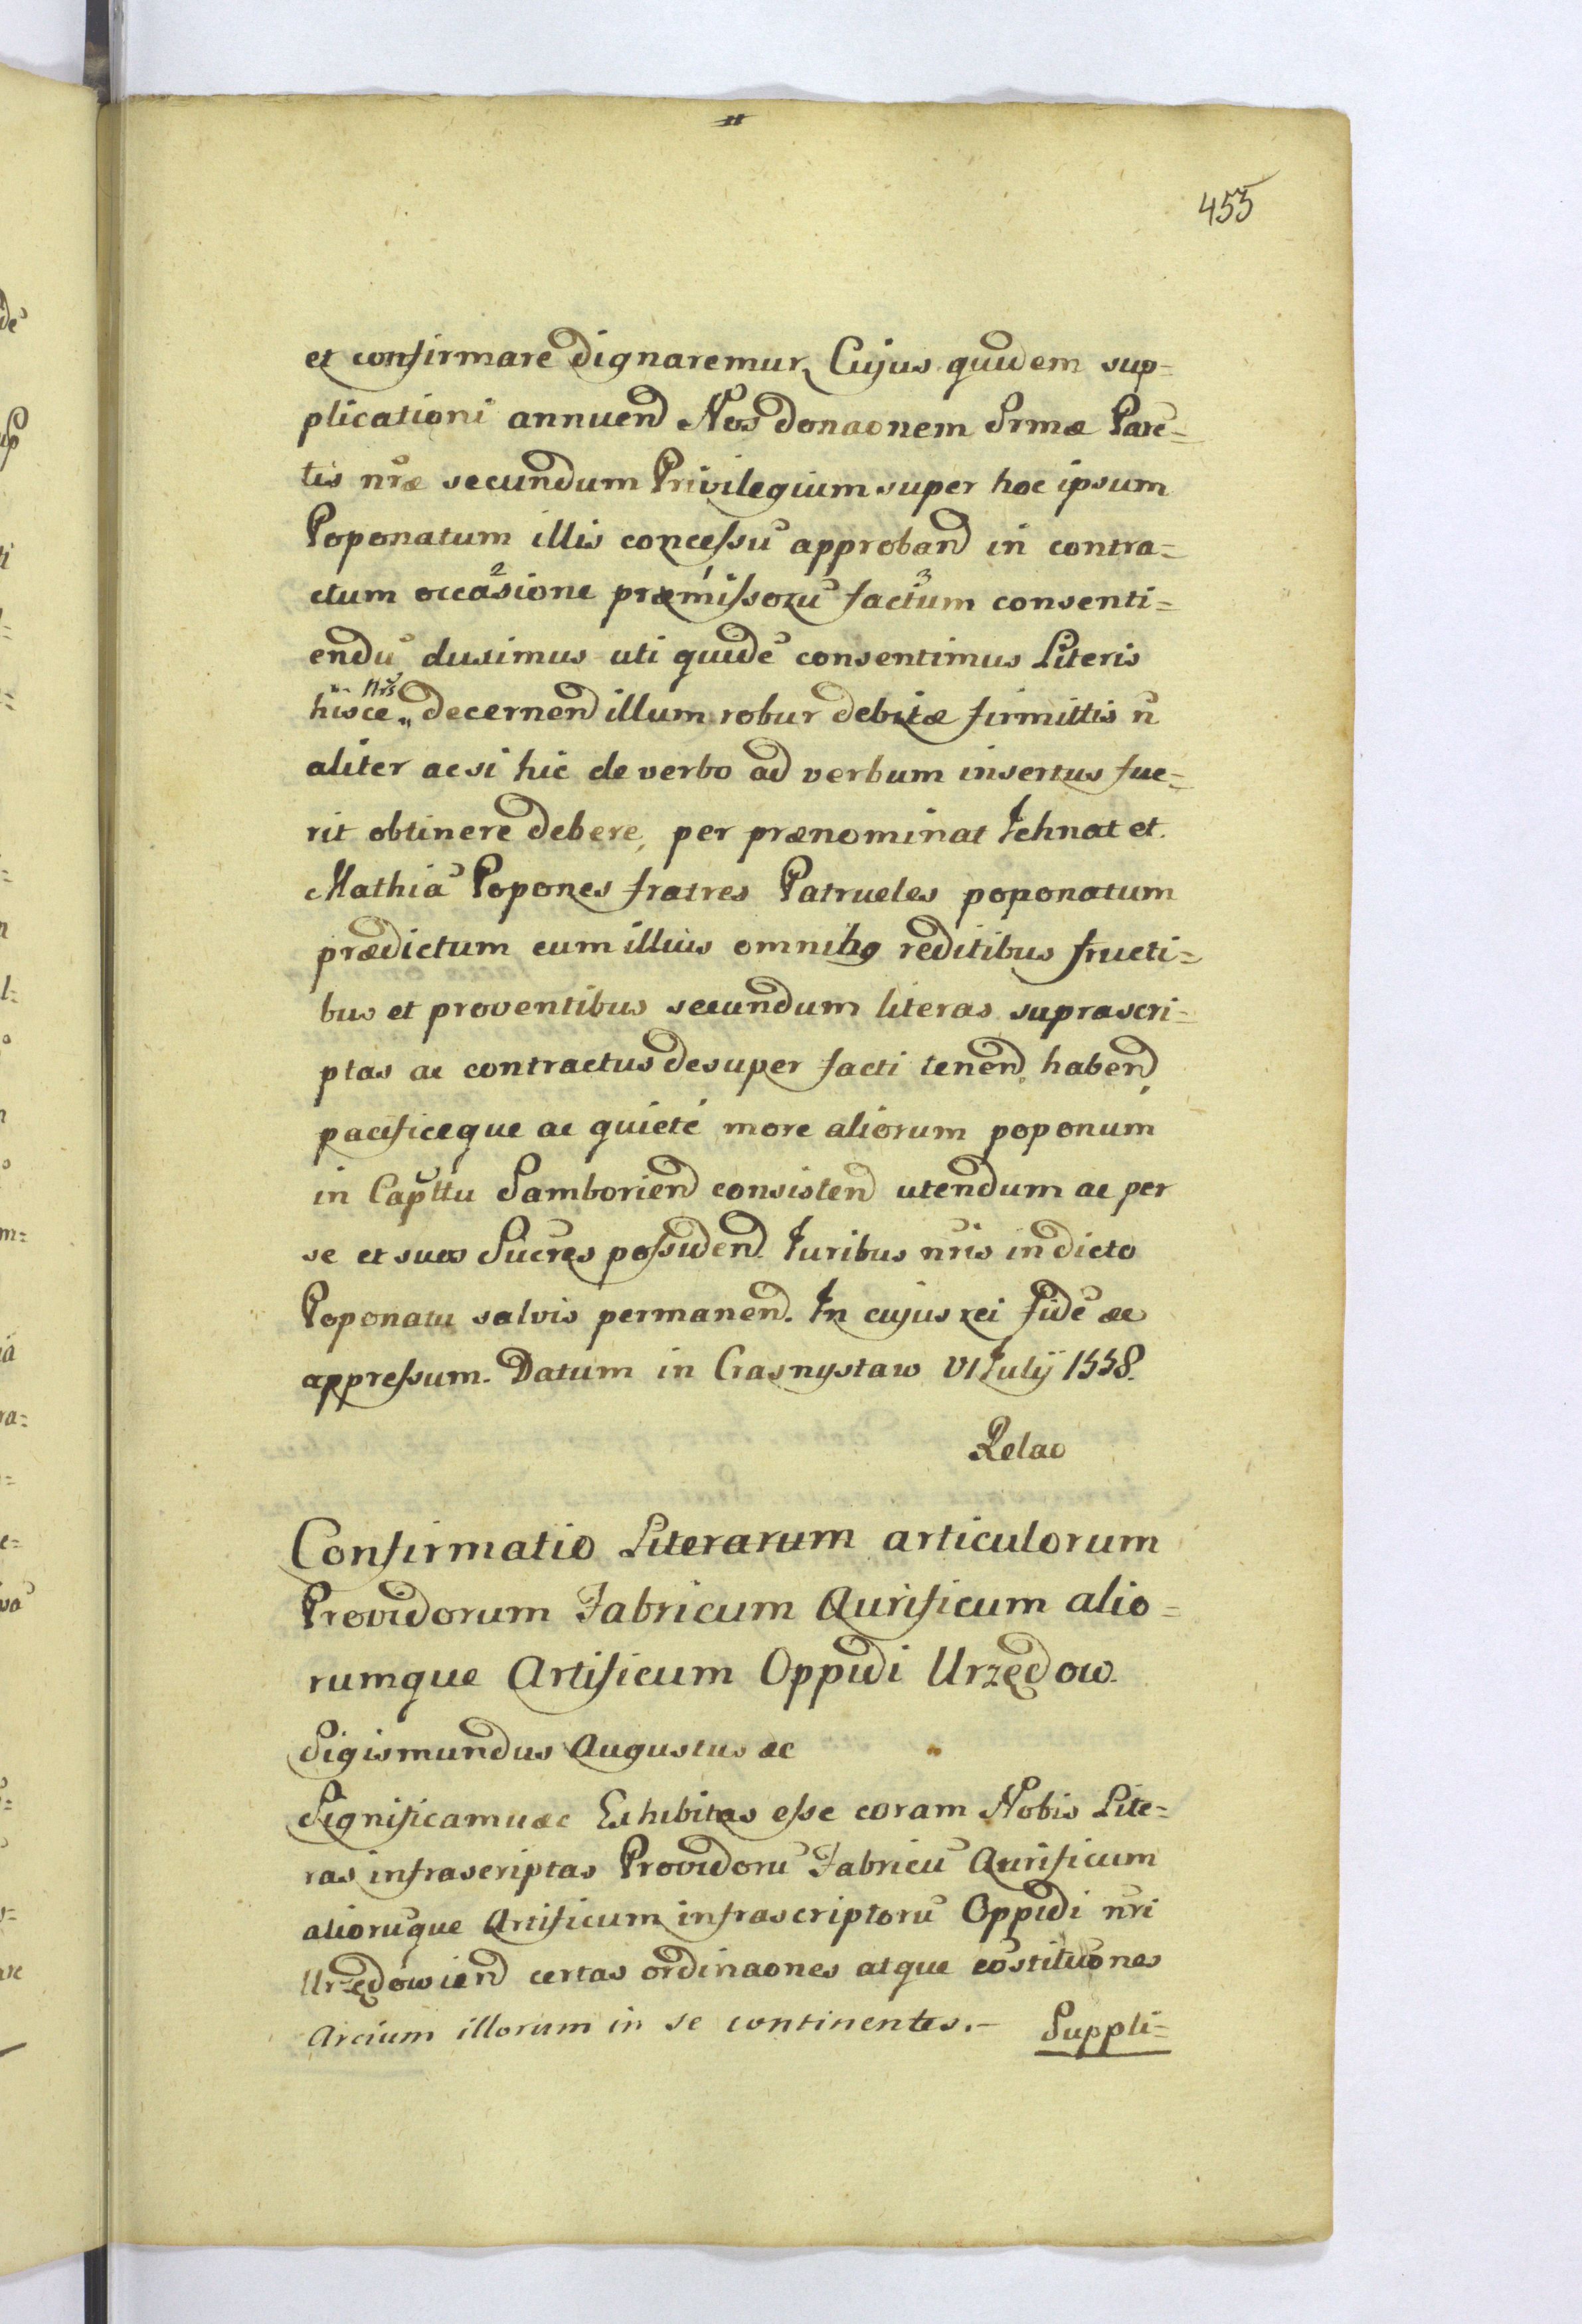 455
et confirmare dignaremur, Cujus quidem sup=
plicationi annuend Nos donaonem Srmæ Parē=
tis nr̃æ secundum Privilegium super hoc ipsum
Poponatum illis concessū approband in contra=
ctum occasione præmissorū factum consenti=
endū duximus uti quidē consentimus Literis
hisce nr̃is decernend illum robur debitæ firmittis n̄
aliter acsi hic de verbo ad verbum insertus fue=
rit obtinere debere, per prænominat Ichnat et
Mathiā Popones fratres Patrueles poponatum
prædictum cum illius omnibq reditibus fructi=
bus et proventibus secundum literas suprascri=
ptas ac contractus desuper facti tenend, habend,
pacificeque ac quieté more aliorum poponum
in Capttu Samboriend consistend utendum ac per
se et suos Sucres possidend. Juribus nr̃is in dicto
Poponatu salvis permanend. In cujus rei fidē ac
appressum. Datum in Crasnystaw VI July 1558.
Relao
Confirmatio Literarum articulorum
Providorum Fabricum Aurificum alio=
rumque Artificum Oppidi Urzędow.
Sigismundus Augustus ac
Significamus ac Exhibitas esse coram Nobis Lite=
ras infrascriptas Providorū Fabricū Aurificum
aliorūque Artificum infrascriptorū Oppidi nr̃i
Urzędowiend certas ordinaones atque cōstituones
Arcium illorum in se continentes.– Suppli=